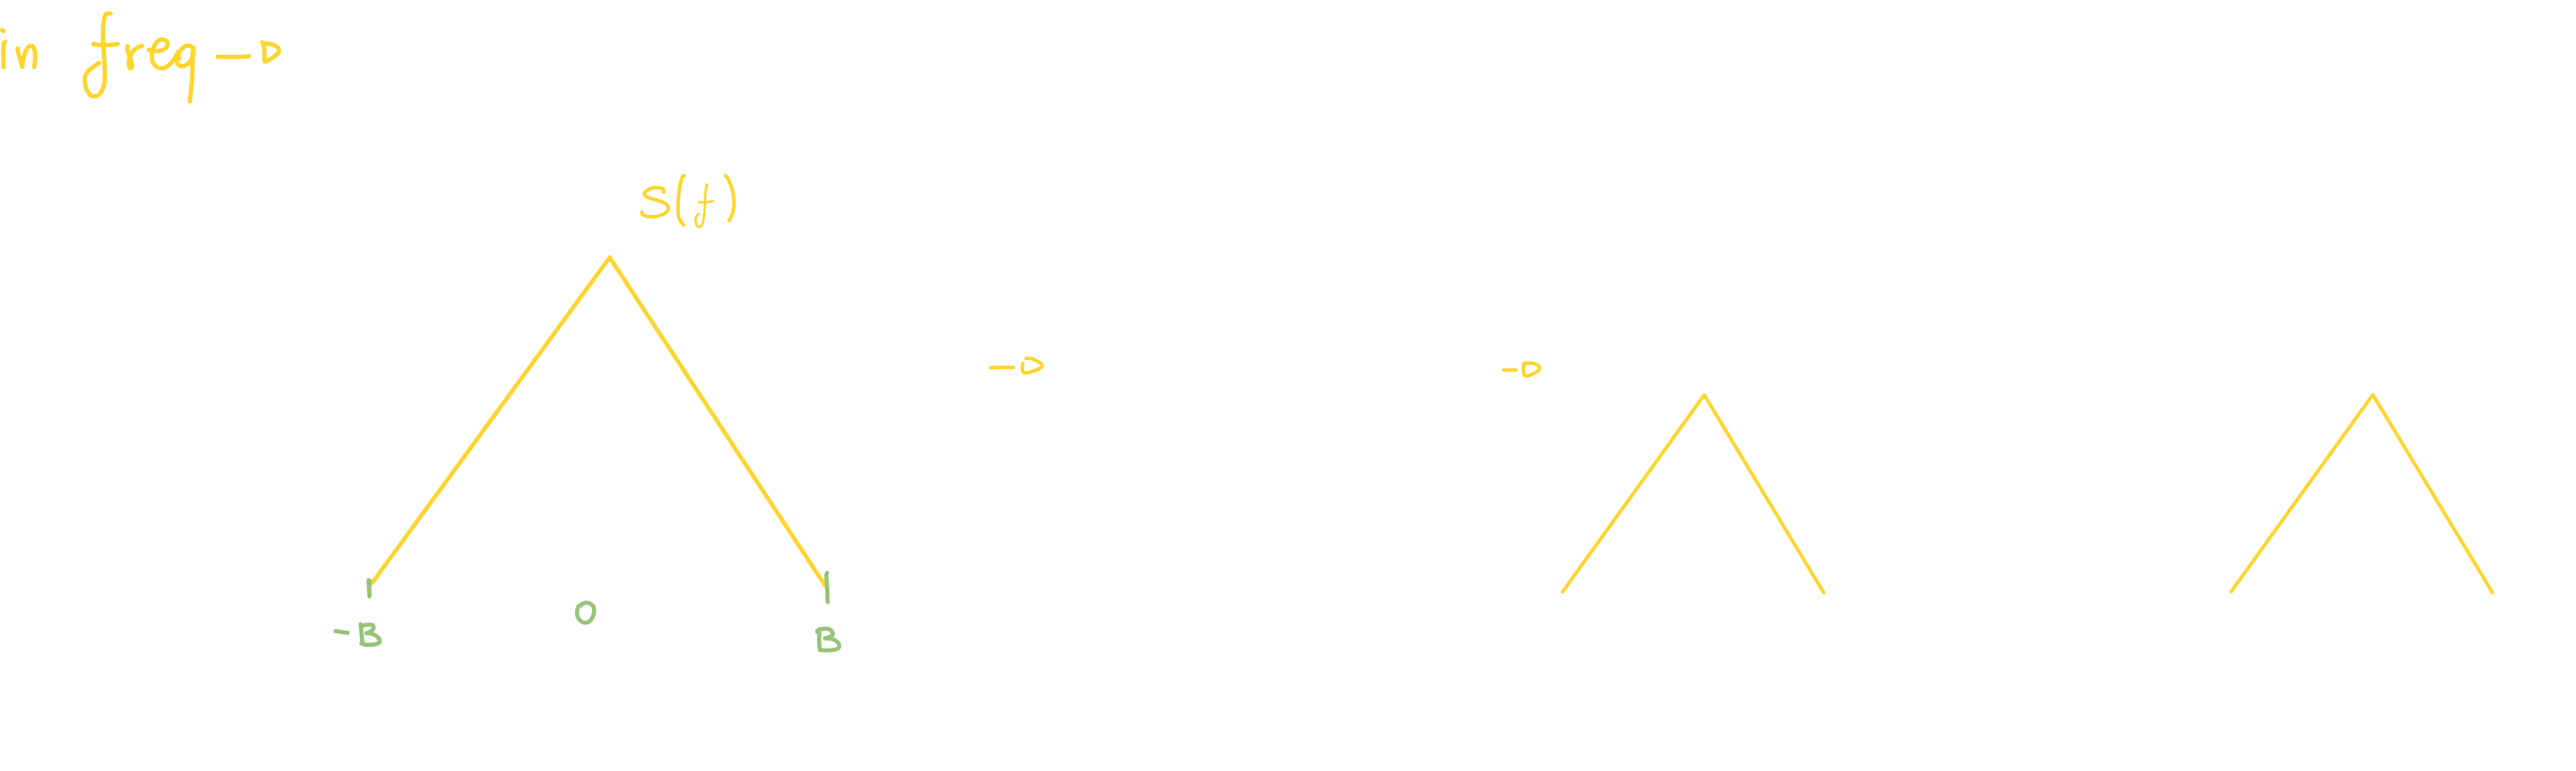 in freq →
S(f)
→ →
-B 0 B